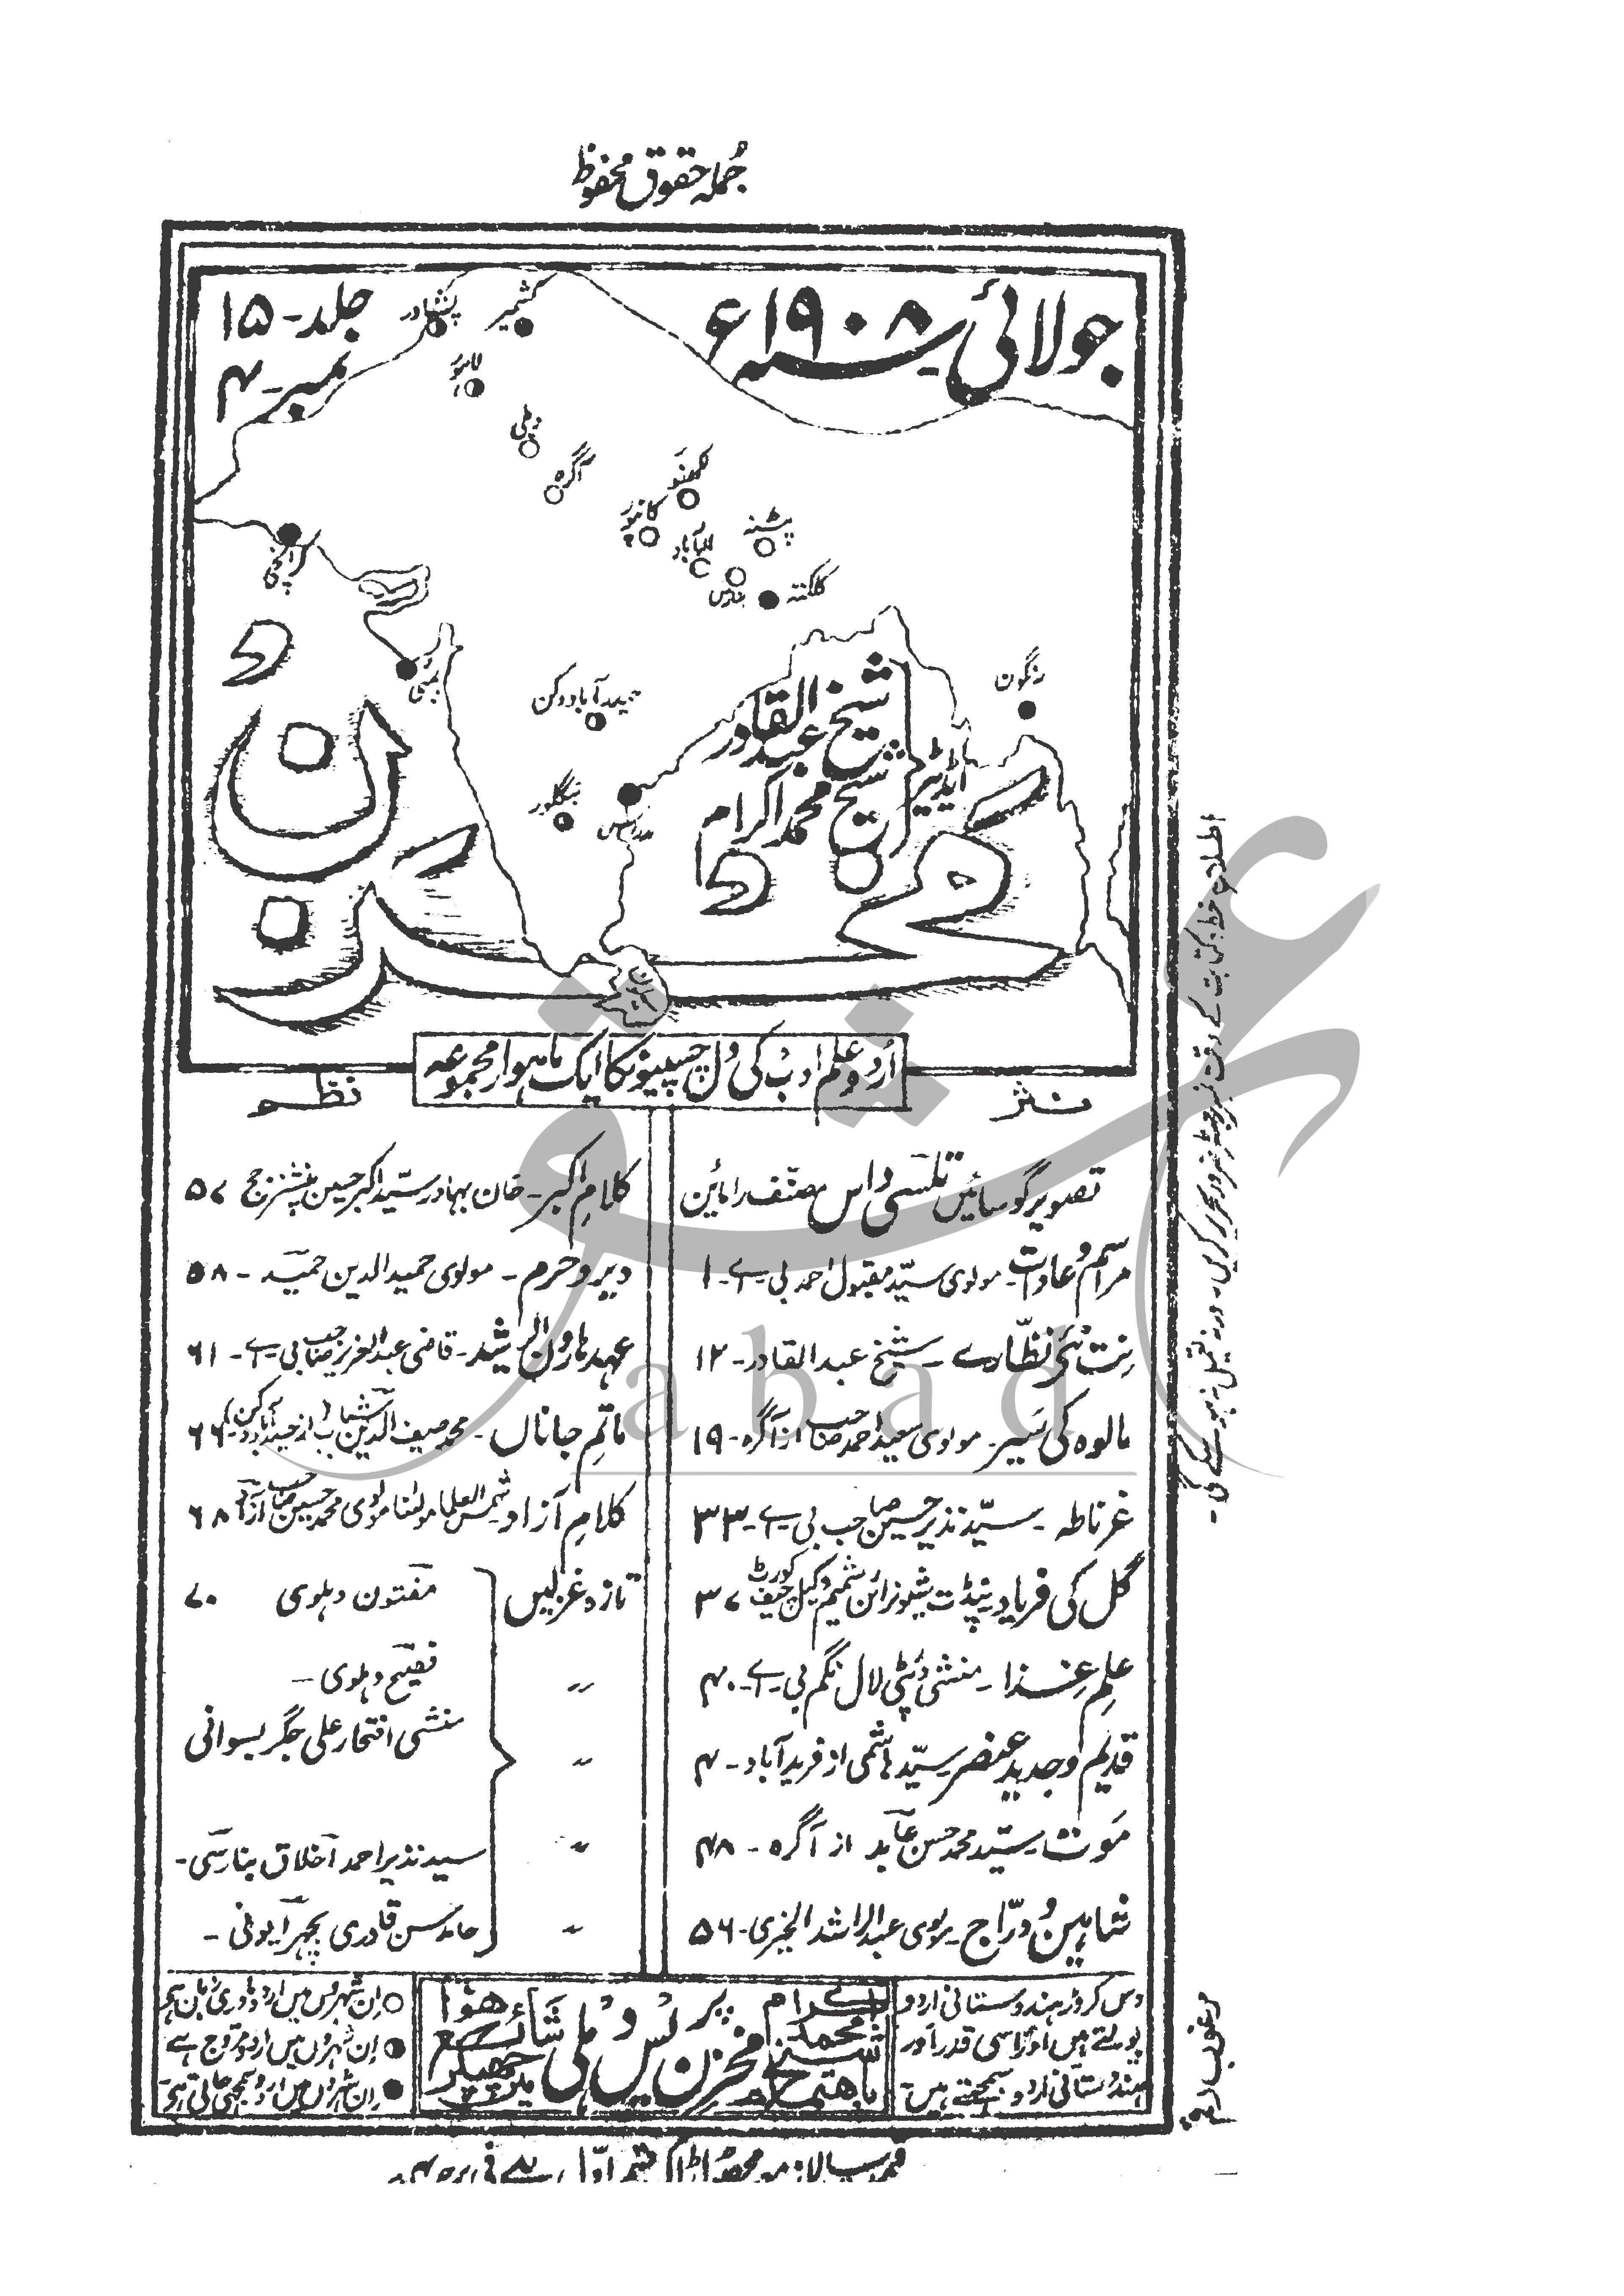 جملہ حقوق محفوظ
جولائی سنہ ۱۹۰۸ء
جلد - ۱۵
نمبر - ۴
پشاور
کشمیر
لاہور
دہلی
آگرہ
لکھنؤ
کانپور
الہ آباد
پٹنہ
بنارس
کلکتہ
کراچی
بمبئی
حیدرآباد دکن
رنگون
بنگلور
مدراس
ایڈیٹر
شیخ عبدالقادر
شیخ محمد اکرام
مخزن
اردو علم ادب کی دلچسپیونکا ایک ماہوار مجموعہ
نثر
تصویر گوسائیں تلسی داس مصنف رامائن
مراسم و عادات - مولوی سید مقبول احمد بی - اے - ۱
نت نئے نظارے - شیخ عبدالقادر - ۱۲
مالوہ کی سیر - مولوی سعید احمد صاحب از آگرہ - ۱۹
غرناطہ - سید نذیر حسین صاحب بی - اے - ۳۳
گل کی فریاد پنڈت شیونرائن شمیم وکیل چیف کورٹ ۳۷
علم غذا - منشی دُپٹی لال نگم بی - اے - ۴۰
قدیم و جدید عنصر سید ہاشمی از فریدآباد - ۴
موت سید محمد حسن عابد از آگرہ - ۴۸
شاہین و درّاج - مولوی عبدالراشد الخیری - ۵۶
نظم
کلام اکبر - خان بہادر سید اکبر حسین پنشنر جج ۵۷
دیر و حرم - مولوی حمید الدین حمید - ۵۸
عہد ہارون الرشید - قاضی عبدالعزیز صاحب بی - اے - ۶۱
ماتم جاناں - محمد سیف الدین شباب از حیدرآباد دکن - ۶۶
کلام آزاد شمس العلما مولٰنا مولوی محمد حسین صاحب آزاد ۶۸
تازہ غزلیں مفتون دہلوی ۷۰
〃 فصیح دہلوی -
〃 منشی افتخار علی جگر بسوانی
〃 سید نذیر احمد اخلاق بنارسی -
〃 حامد حسن قادری بچھرایونی -
دس کروڑ ہندوستانی اردو
بولتے ہیں اور اسی قدر اور
ہندوستانی اردو سمجھتے ہیں
باہتمام شیخ محمد اکرام
مخزن پریس دہلی میں چھپکر شائع ہوا
○ اِن شہروں میں اردو مادری زبان ہے
◐ اِن شہروں میں اردو مروج ہے
● اِن شہروں میں اردو سمجھی جاتی ہے
اطلاع خط و کتابت کے وقت نمبر چٹ ضرور تحریر کریں - ورنہ تعمیل نہ ہو سکے گی -
عشق
abad